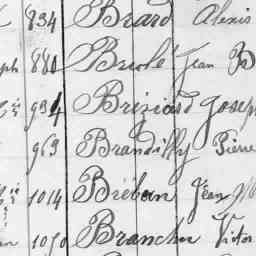 834 Biard Alexis
880 Briolé Jean B
934 Brénard Joseph
963 Brandilly Pierre
1014 Bréban Jean M
1050 Brancher Victor